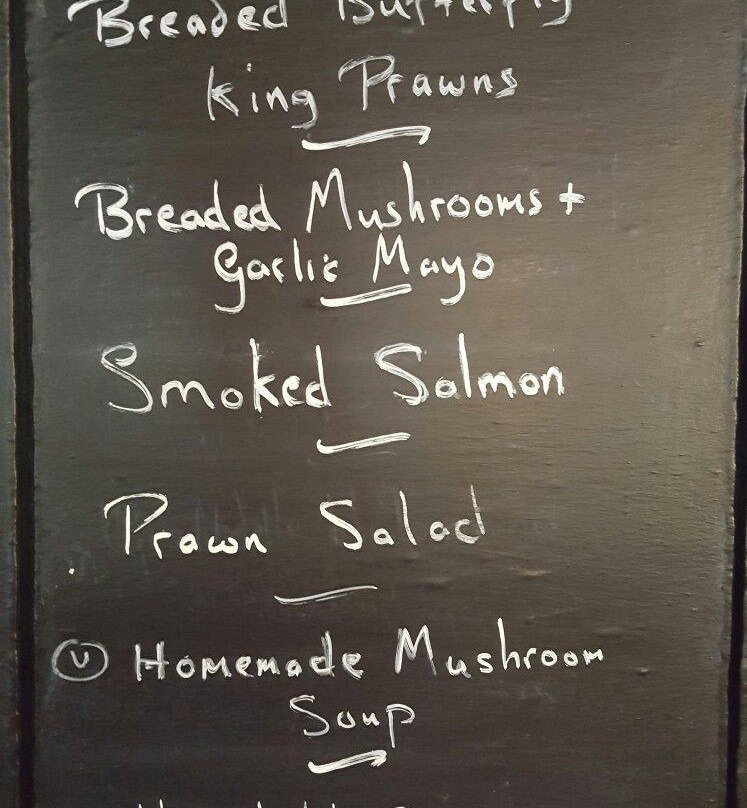 Breaded Butterfly
King Prawns
Breaded Mushrooms +
Garlic Mayo
Smoked Salmon
Prawn Salad
V Homemade Mushroom
Soup